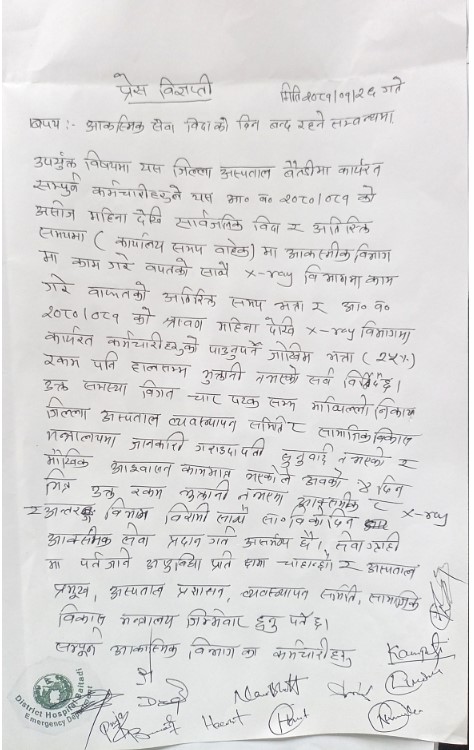 प्रेस विज्ञप्ती
मिति २०८१/०१/२६ गते
विषय :- आकस्मिक सेवा विदाको दिन बन्द रहने सम्वन्धमा
उपर्युक्त विषयमा यस जिल्ला अस्पताल बैतडीमा कार्यरत
सम्पुर्ण कर्मचारीहरुले यस आ० व० २०८०/०८१ को
असोज महिना देखि सार्वजनिक विदा र अतिरिक्त
समयमा ( कार्यालय समय वाहेक) मा आकस्मीक विभाग
मा काम गरे वापतको साथै x-ray विभागमा काम
गरे वापतको अतिरिक्त समय भत्ता र आ० व०
२०८०/०८१ को श्रावण महिना देखि x-ray विभागमा
कार्यरत कर्मचारीहरुको पाउनुपर्ने जोखिम भत्ता (२५%)
रकम पनि हालसम्म भुक्तानी नभएको सर्व विदितै छ।
उक्त समस्या विगत चार पटक सम्म माथिल्लो निकाय
जिल्ला अस्पताल व्यवस्थापन समिति र सामाजिक विकास
मन्त्रालयमा जानकारी गराउदा पनी सुनुवाई नभएको र
मौखिक आश्वासन काममात्र भएकोले अवको ४ दिन
भित्र उक्त रकम भुक्तानी नभएमा आकस्मीक र x-ray
र अन्तरङ्ग विभाग विरामी सार्वजनिक विदा दिन
आकस्मिक सेवा प्रदान गर्न असमर्थ छौ। सेवाग्राही
मा पर्न जाने असुविधा प्रति क्षमा चाहान्छौ र अस्पताल
प्रमुख, अस्पताल प्रशासन, व्यवस्थापन समिति, सामाजिक
विकास मन्त्रालय जिम्मेवार हुनु पर्नेछ।
सम्पूर्ण आकास्मिक विभाग का कर्मचारीहरु
District Hospital Baitadi
Emergency Department